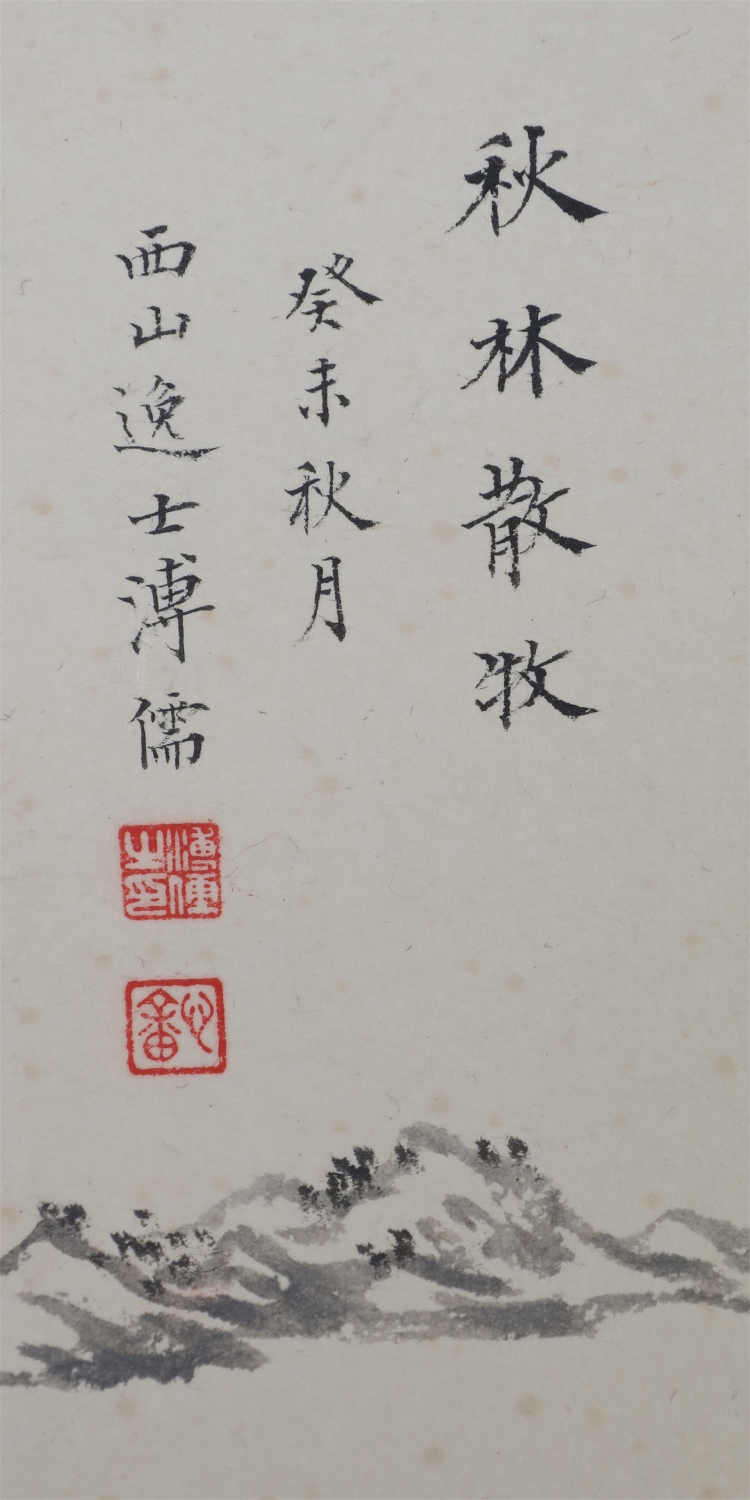 秋林散牧
癸未秋月
西山逸士溥儒
溥儒之印
心畬